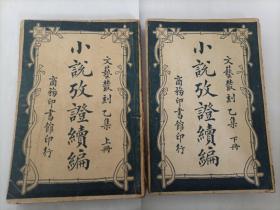 文藝叢刻乙集 上册
小說攷證續編
商務印書館印行
文藝叢刻乙集 下册
小說攷證續編
商務印書館印行